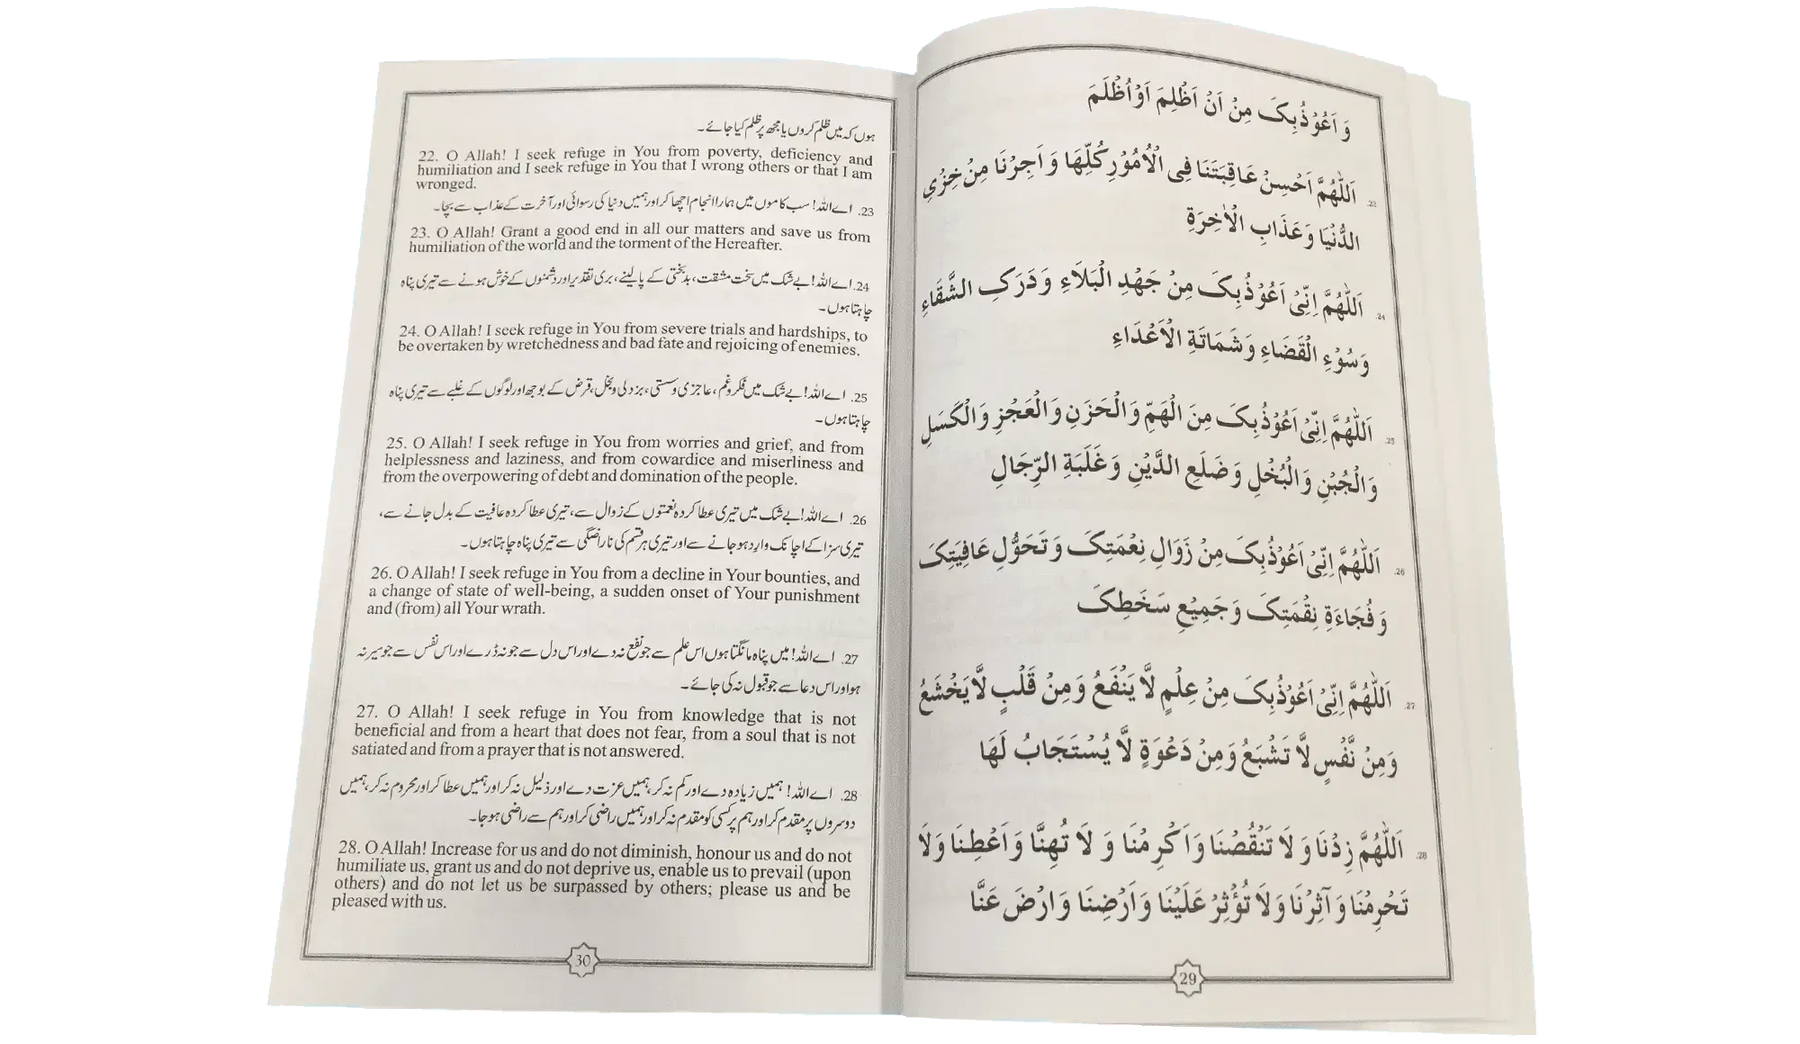 وَ اَعُوْذُبِکَ مِنْ اَنْ اَظْلِمَ اَوْ اُظْلَمَ
23. اَللّٰهُمَّ اَحْسِنْ عَاقِبَتَنَا فِی الْاُمُوْرِ كُلِّهَا وَ اَجِرْنَا مِنْ خِزْیِ
الدُّنْيَا وَ عَذَابِ الْاٰخِرَةِ
24. اَللّٰهُمَّ اِنِّیْ اَعُوْذُبِکَ مِنْ جَهْدِ الْبَلَاءِ وَ دَرَکِ الشَّقَاءِ
وَ سُوْءِ الْقَضَاءِ وَ شَمَاتَةِ الْاَعْدَاءِ
25. اَللّٰهُمَّ اِنِّیْ اَعُوْذُبِکَ مِنَ الْهَمِّ وَ الْحَزَنِ وَ الْعَجْزِ وَ الْكَسَلِ
وَ الْجُبْنِ وَ الْبُخْلِ وَ ضَلَعِ الدَّيْنِ وَ غَلَبَةِ الرِّجَالِ
26. اَللّٰهُمَّ اِنِّیْ اَعُوْذُبِکَ مِنْ زَوَالِ نِعْمَتِکَ وَ تَحَوُّلِ عَافِيَتِکَ
وَ فُجَاءَةِ نِقْمَتِکَ وَ جَمِيْعِ سَخَطِکَ
27. اَللّٰهُمَّ اِنِّیْ اَعُوْذُبِکَ مِنْ عِلْمٍ لَّا يَنْفَعُ وَ مِنْ قَلْبٍ لَّا يَخْشَعُ
وَ مِنْ نَّفْسٍ لَّا تَشْبَعُ وَ مِنْ دَعْوَةٍ لَّا يُسْتَجَابُ لَهَا
28. اَللّٰهُمَّ زِدْنَا وَ لَا تَنْقُصْنَا وَ اَكْرِمْنَا وَ لَا تُهِنَّا وَ اَعْطِنَا وَ لَا
تَحْرِمْنَا وَ آثِرْنَا وَ لَا تُؤْثِرْ عَلَيْنَا وَ اَرْضِنَا وَ ارْضَ عَنَّا
29
ہوں کہ میں ظلم کروں یا مجھ پر ظلم کیا جائے۔
22. O Allah! I seek refuge in You from poverty, deficiency and
humiliation and I seek refuge in You that I wrong others or that I am
wronged.
23. اے اللہ! سب کاموں میں ہمارا انجام اچھا کر اور ہمیں دنیا کی رسوائی اور آخرت کے عذاب سے بچا۔
23. O Allah! Grant a good end in all our matters and save us from
humiliation of the world and the torment of the Hereafter.
24. اے اللہ! بے شک میں سخت مشقت، بدبختی کے پا لینے، بری تقدیر اور دشمنوں کے خوش ہونے سے تیری پناہ
چاہتا ہوں۔
24. O Allah! I seek refuge in You from severe trials and hardships, to
be overtaken by wretchedness and bad fate and rejoicing of enemies.
25. اے اللہ! بے شک میں فکر و غم، عاجزی و سستی، بزدلی و بخل، قرض کے بوجھ اور لوگوں کے غلبے سے تیری پناہ
چاہتا ہوں۔
25. O Allah! I seek refuge in You from worries and grief, and from
helplessness and laziness, and from cowardice and miserliness and
from the overpowering of debt and domination of the people.
26. اے اللہ! بے شک میں تیری عطا کردہ نعمتوں کے زوال سے، تیری عطا کردہ عافیت کے بدل جانے سے،
تیری سزا کے اچانک وارد ہو جانے سے اور تیری ہر قسم کی ناراضگی سے تیری پناہ چاہتا ہوں۔
26. O Allah! I seek refuge in You from a decline in Your bounties, and
a change of state of well-being, a sudden onset of Your punishment
and (from) all Your wrath.
27. اے اللہ! میں پناہ مانگتا ہوں اس علم سے جو نفع نہ دے اور اس دل سے جو نہ ڈرے اور اس نفس سے جو سیر نہ
ہو اور اس دعا سے جو قبول نہ کی جائے۔
27. O Allah! I seek refuge in You from knowledge that is not
beneficial and from a heart that does not fear, from a soul that is not
satiated and from a prayer that is not answered.
28. اے اللہ! ہمیں زیادہ دے اور کم نہ کر، ہمیں عزت دے اور ذلیل نہ کر اور ہمیں عطا کر اور محروم نہ کر، ہمیں
دوسروں پر مقدم کر اور ہم پر کسی کو مقدم نہ کر اور ہمیں راضی کر اور ہم سے راضی ہو جا۔
28. O Allah! Increase for us and do not diminish, honour us and do not
humiliate us, grant us and do not deprive us, enable us to prevail (upon
others) and do not let us be surpassed by others; please us and be
pleased with us.
30